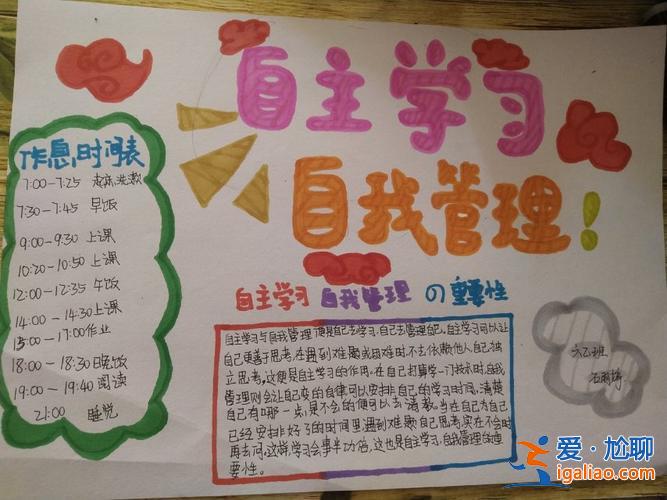 自主学习
自我管理!
作息时间表
7:00-7:25 起床洗漱
7:30-7:45 早饭
9:00-9:30 上课
10:20-10:50 上课
12:00-12:35 午饭
14:00-14:30上课
15:00-17:00作业
18:00-18:30晚饭
19:00-19:40阅读
21:00 睡觉
自主学习 自我管理 の重要性
自主学习与自我管理便是自己去学习,自己去管理自己,自主学习可以让
自己更善于思考,在遇到难题或困难时不去依赖他人,自己独
立思考,这便是自主学习的作用,在自己打算学一门技术时,自我
管理则会让自己变的自律可以安排自己的学习时间,清楚
自己有哪一点,是不会的便可以去请教,当在自己为自己
已经安排好了的时间里遇到难题,自己思考,实在不会时
再去问,这样,学习会事半功倍,这也是自主学习,自我管理的重
要性。
六乙班
爱·尬聊
igaliao.com